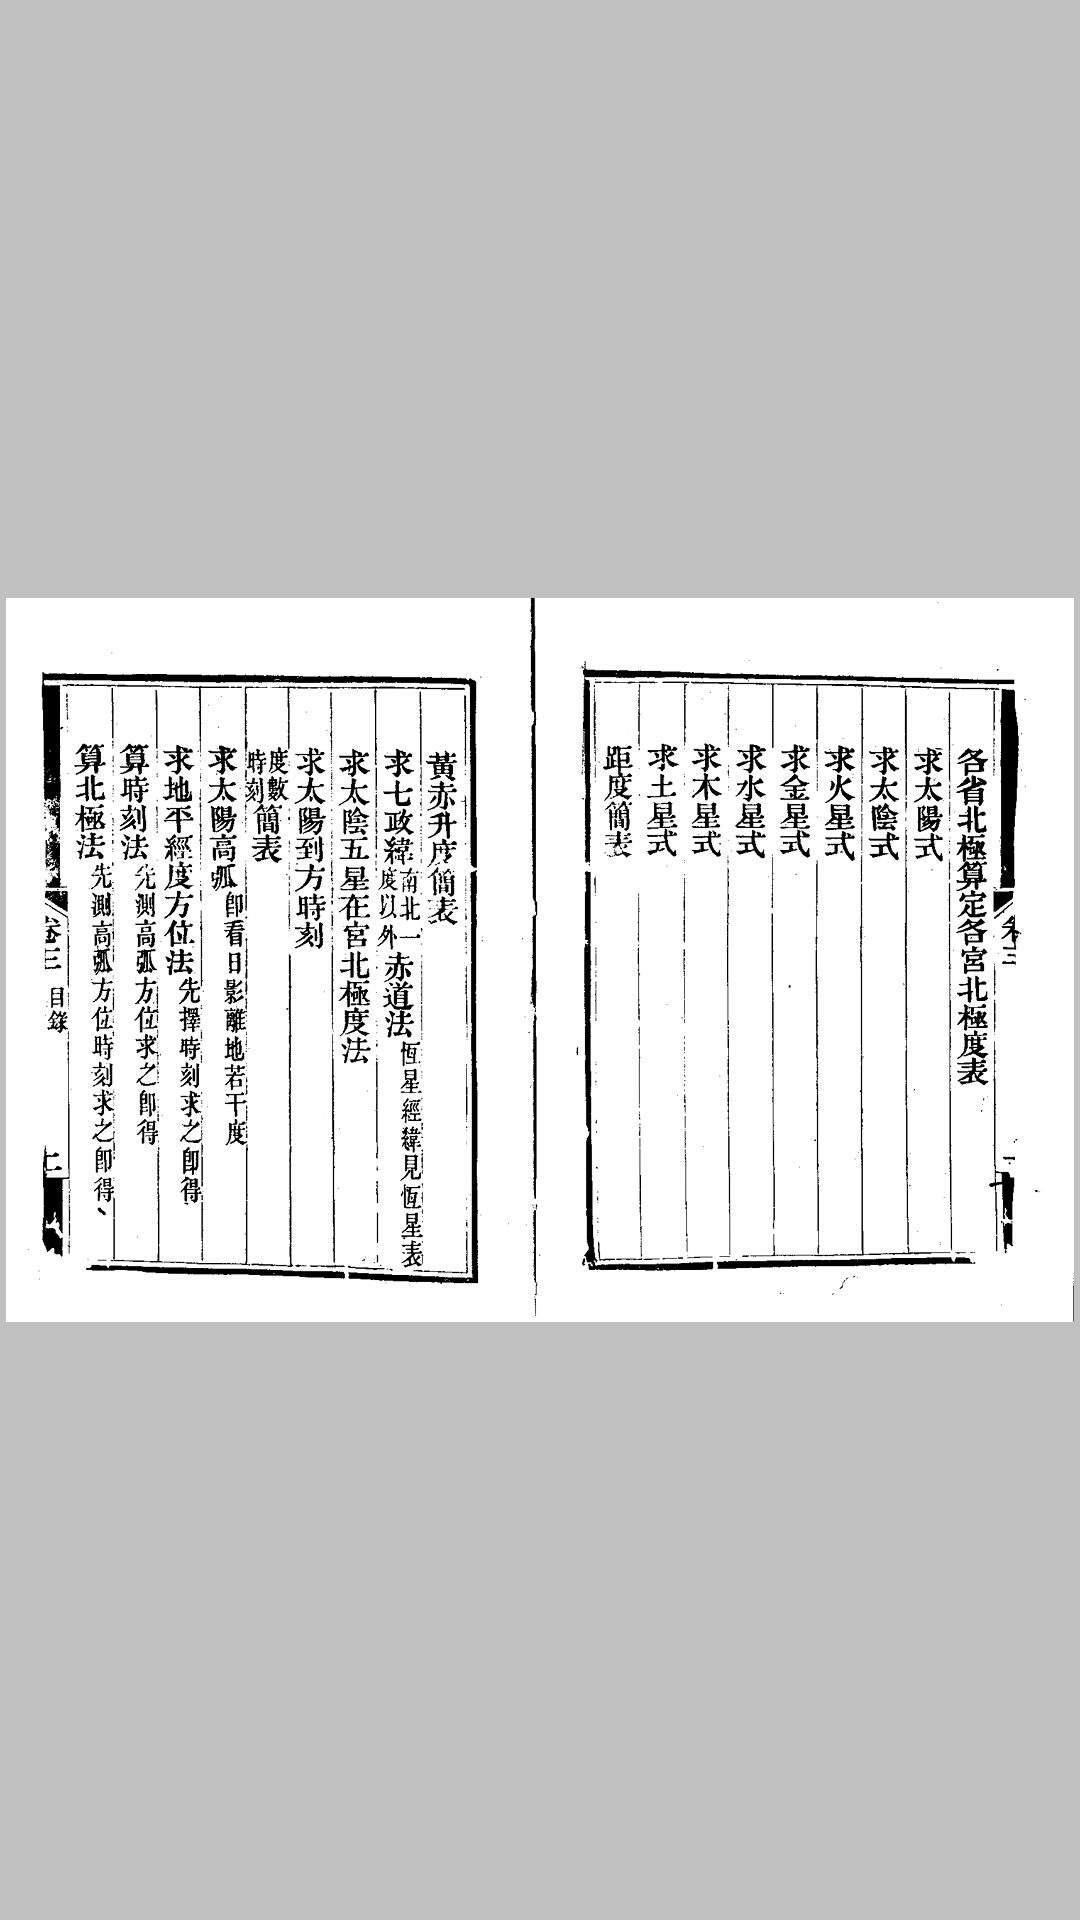 各省北極算定各宮北極度表
求太陽式
求太陰式
求火星式
求金星式
求水星式
求木星式
求土星式
距度簡表
卷三
黃赤升度簡表
求七政緯南北一度以外赤道法恆星經緯見恆星表
求太陰五星在宮北極度法
求太陽到方時刻
度數時刻簡表
求太陽高弧卽看日影離地若干度
求地平經度方位法先擇時刻求之卽得
算時刻法先測高弧方位求之卽得
算北極法先測高弧方位時刻求之卽得
卷三 目錄